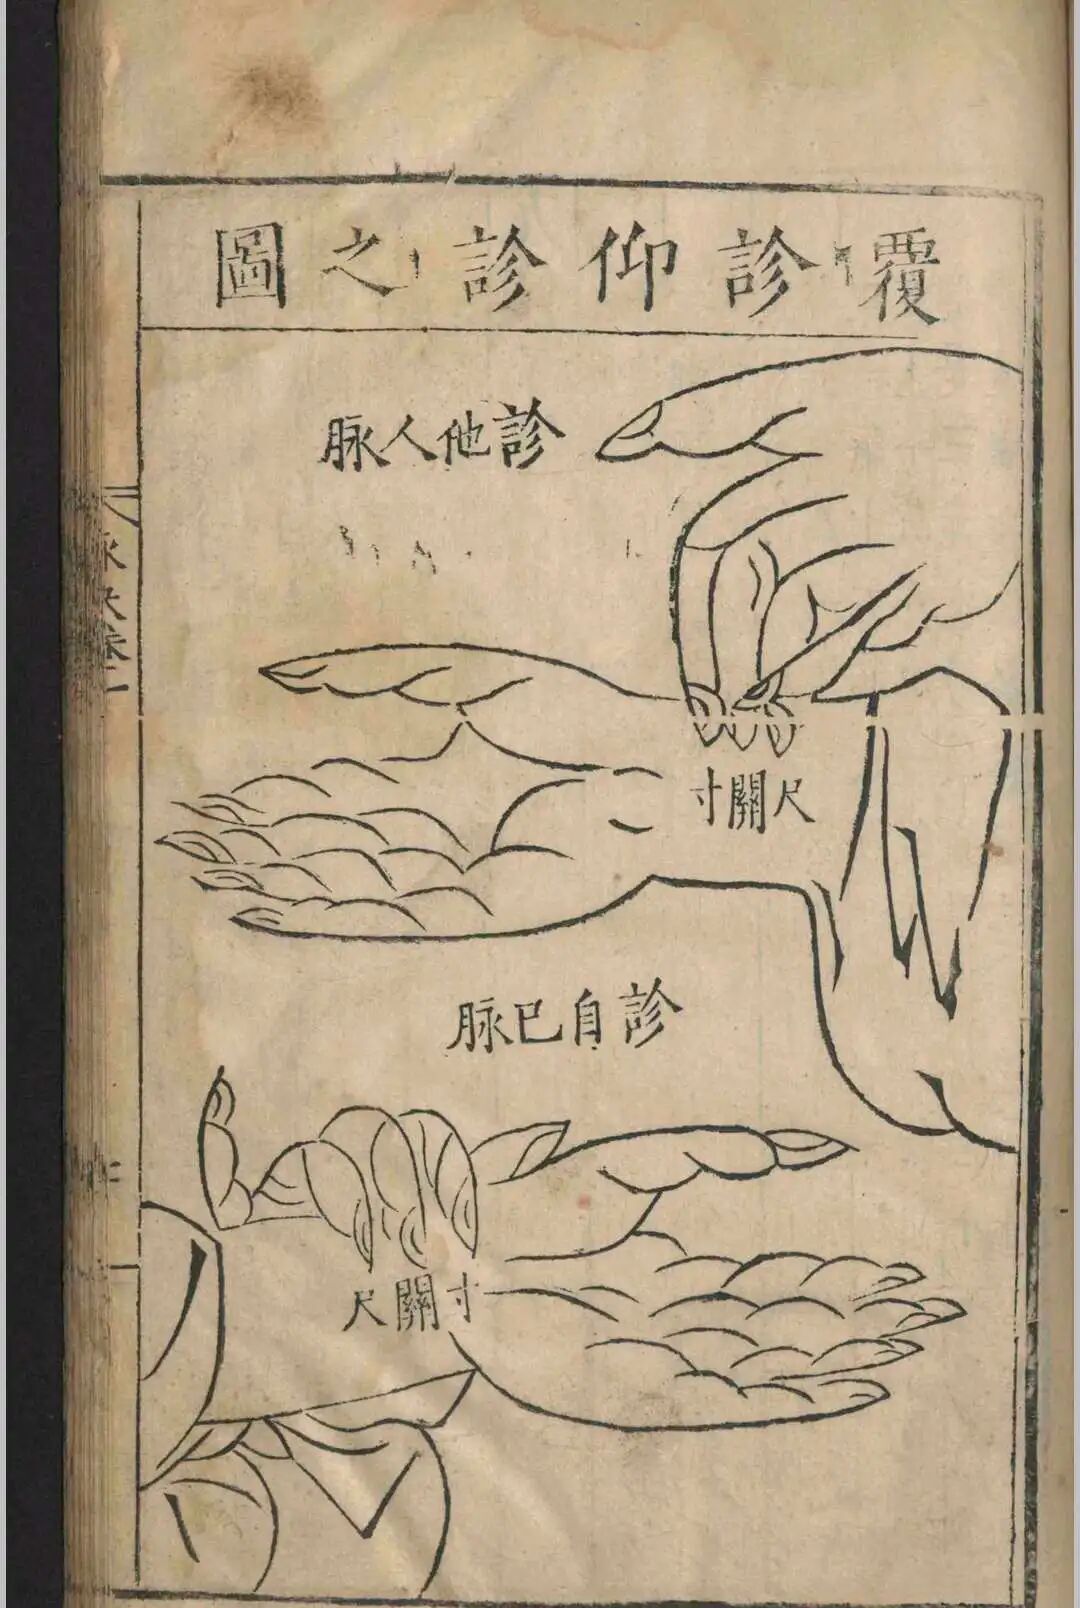 覆診仰診之圖
診他人脉
尺關寸
診自已脉
寸關尺